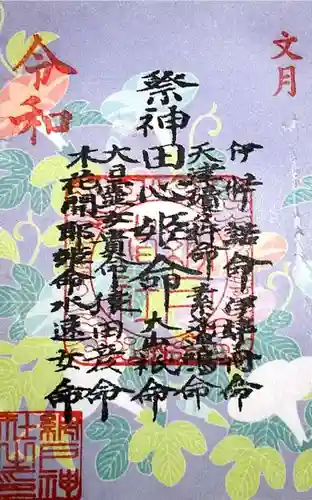 文月
伊弉諾命伊弉冉命
天津瓊杵命素盞嗚命
祭神田心姫命大山祇命
大日霊女貴命猿田彦命
木花開耶姫命水速女命
令和
網戸神
社之印